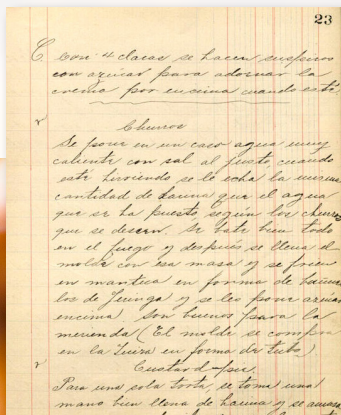 23
C con 4 claras se hacen suspiros
con azúcar para adornar la
crema por encima cuando esté
Churros
Se pone en un cazo agua muy
caliente con sal al gusto, cuando
esté hirviendo se le echa la misma
cantidad de harina que el agua
que se ha puesto, según los churros
que se deseen. Se bate bien todo
en el fuego y después se llena el
molde con esa masa y se fríen
en manteca en forma de buñue
los de jeringa y se les pone azúcar
encima. Son buenos para la
merienda (El molde se compra
en la en forma de tubo)
Custard-pie.
Para una sola torta se toma una
mano bien llena de harina y se amasa